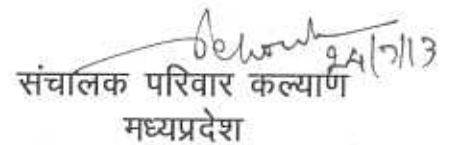 24/7/13
संचालक परिवार कल्याण
मध्यप्रदेश